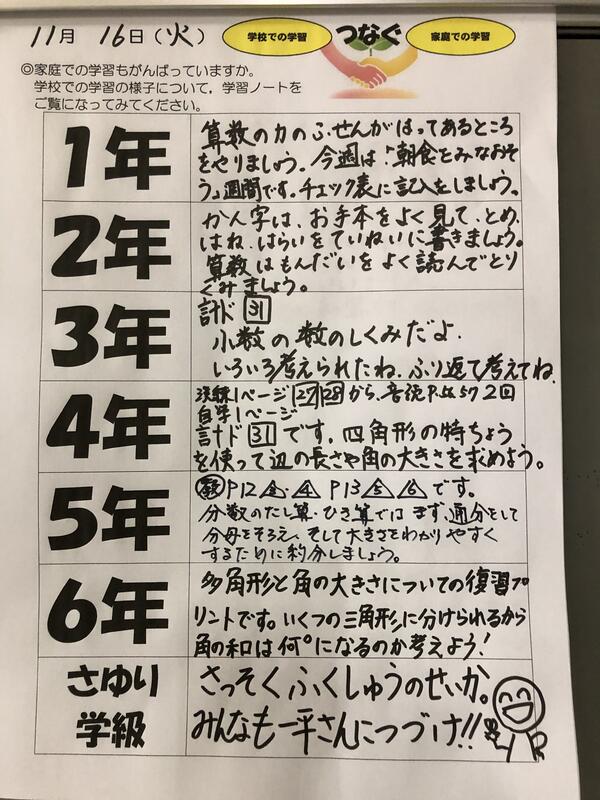 11月 16日(火)
学校での学習
つなぐ
家庭での学習
◎家庭での学習もがんばっていますか。
学校での学習の様子について,学習ノートを
ご覧になってみてください。
1年
算数の力のふせんがはってあるところ
をやりましょう。今週は「朝食をみなおそ
う」週間です。チェック表に記入をしましょう。
2年
かん字は、お手本をよく見て、とめ、
はね、はらいをていねいに書きましょう。
算数はもんだいをよく読んでとり
くみましょう。
3年
計ド 31
小数の数のしくみだよ.
いろいろ考えられたね.ふり返て考えてね.
4年
漢練1ページ 27 28 から、音読P.56 57 2回
自学1ページ
計ド 31 です。四角形の特ちょう
を使って辺の長さや角の大きさを求めよう。
5年
P12 3・4 P13 5 6 です。
分数のたし算・ひき算では まず、通分をして
分母をそろえ、そして大きさをわかりやすく
するために約分しましょう。
6年
多角形と角の大きさについての復習プ
リントです。いくつの三角形に分けられるから
角の和は何°になるのか考えよう!
さゆり
学級
さっそくふくしゅうのせいか。
みんなも一平さんにつづけ!!